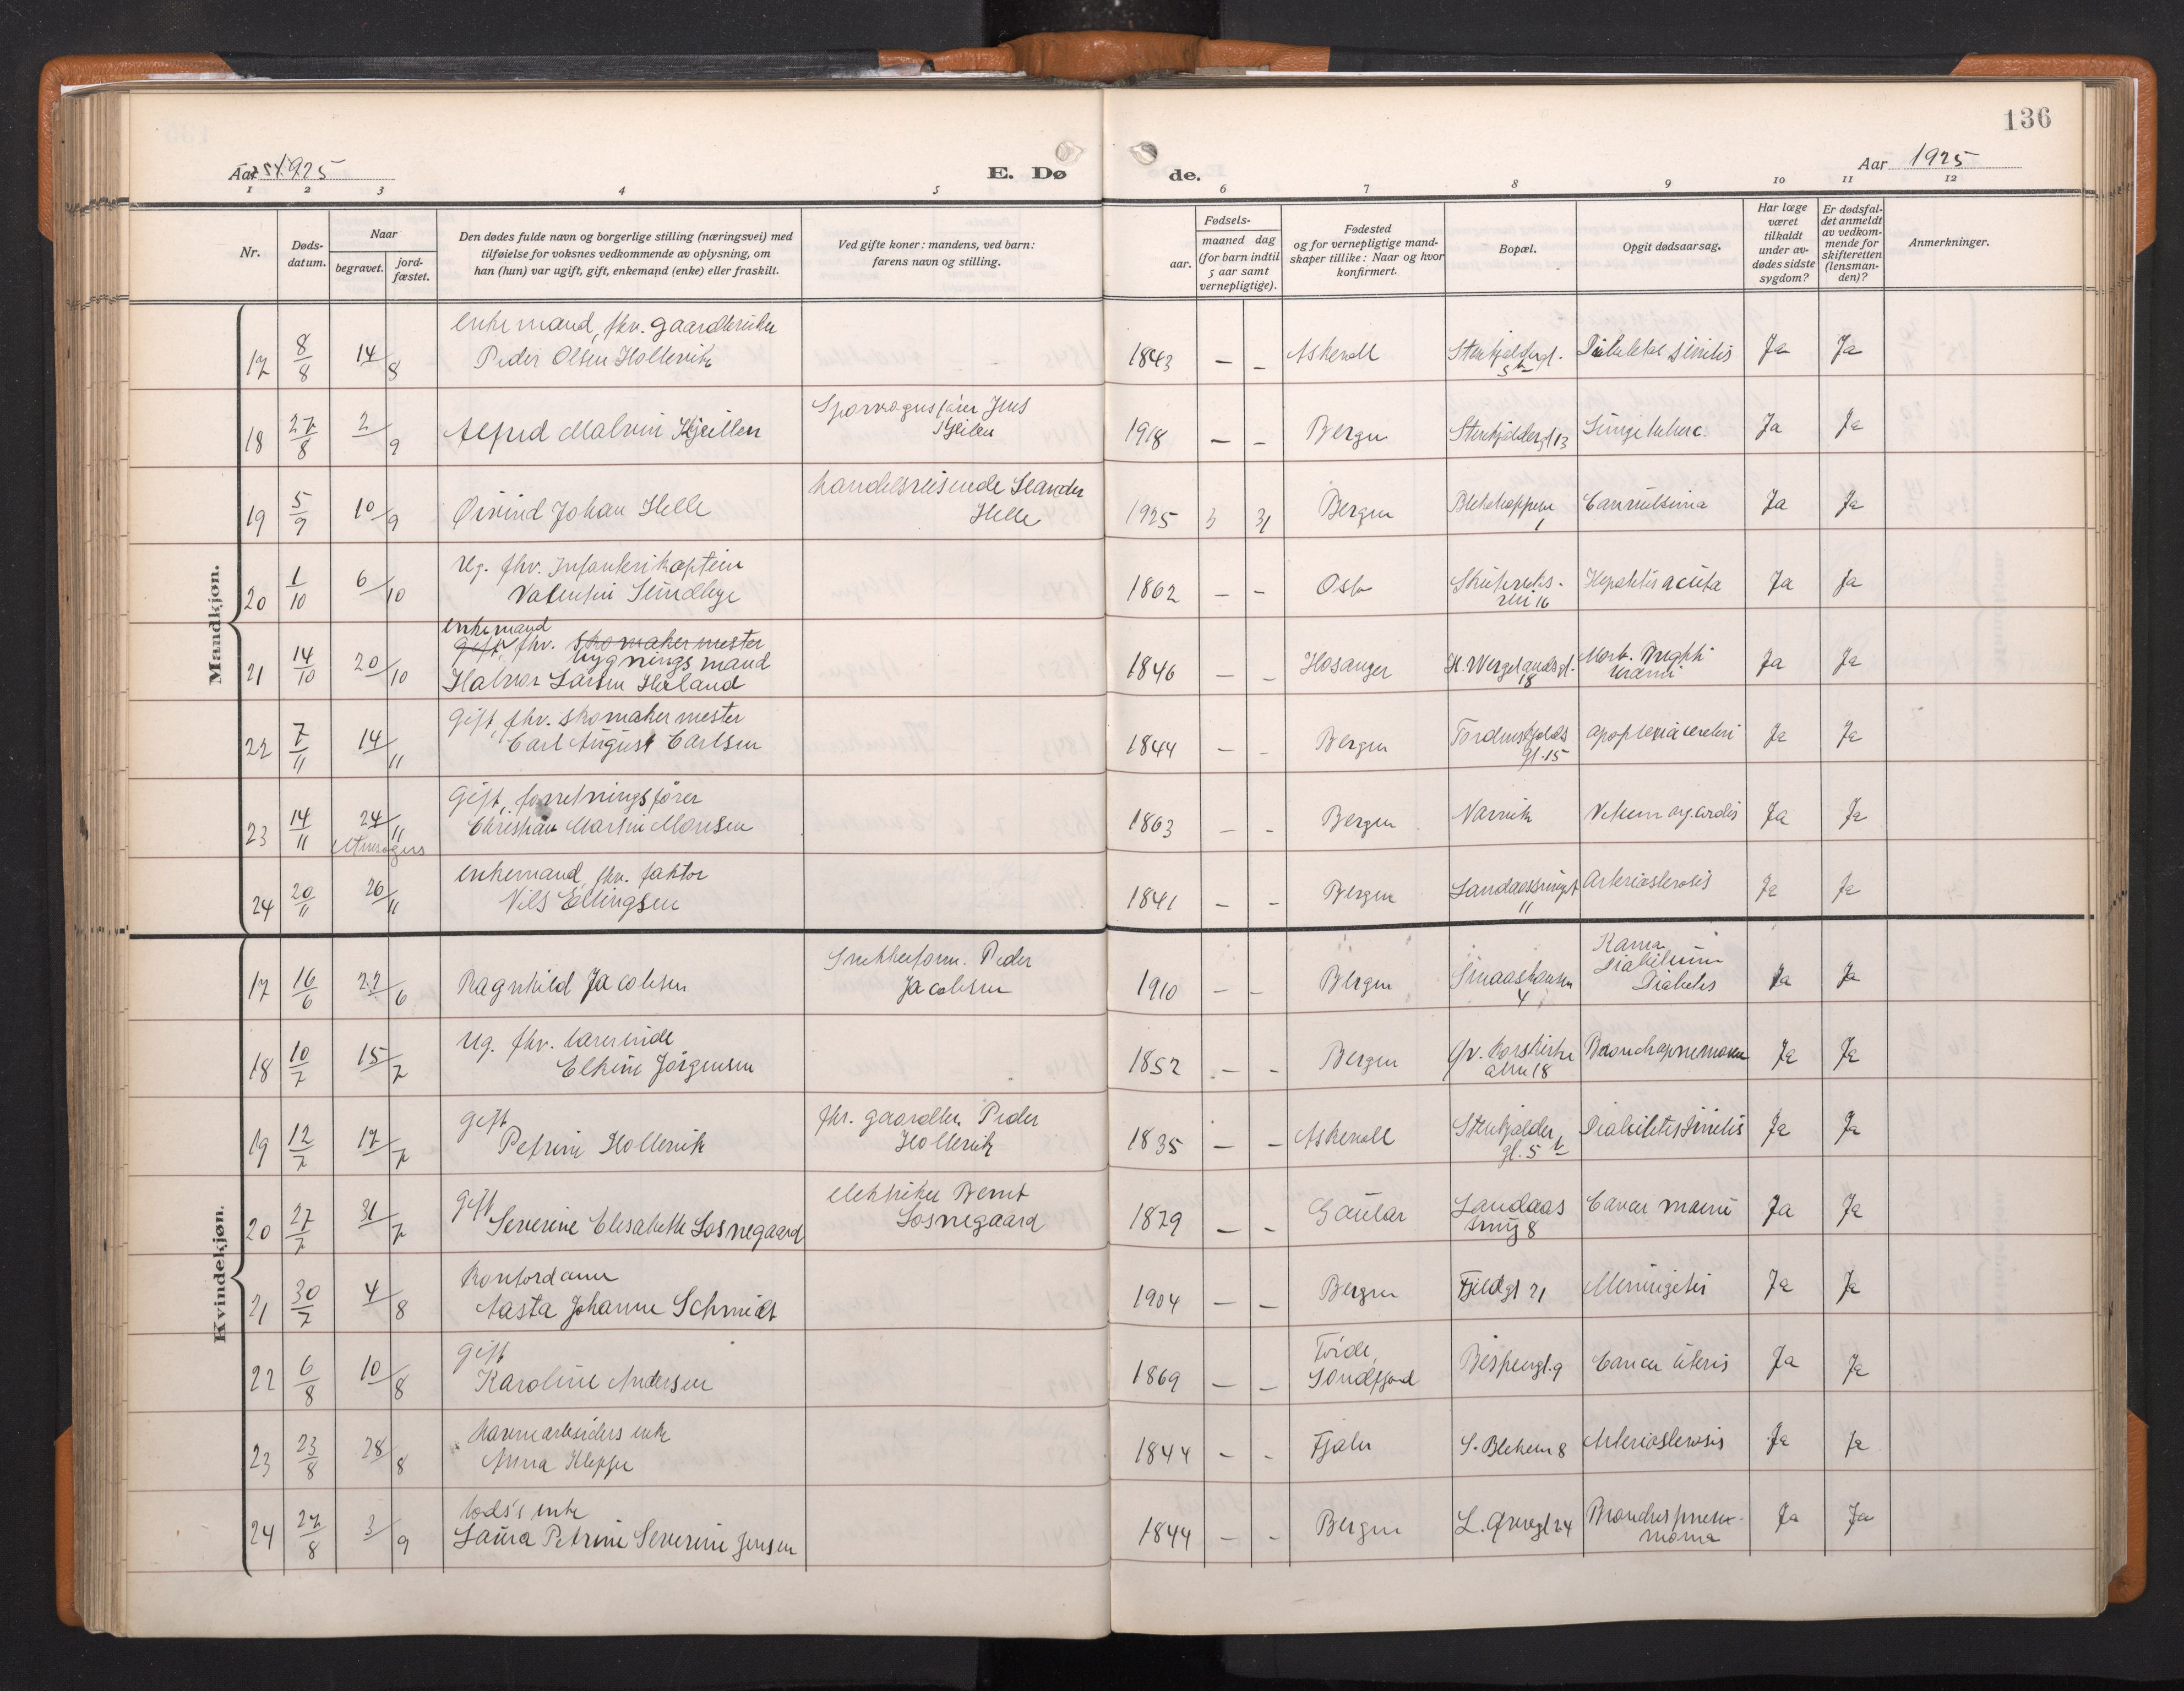 136
Aar 1925
E. Dø
de.
Aar 1925
1 2 3 4 5 6 7 8 9 10 11 12
Nr.
Døds-
datum.
Naar
begravet.
jord-
fæstet.
Den dødes fulde navn og borgerlige stilling (næringsvei) med
tilføielse for voksnes vedkommende av oplysning, om
han (hun) var ugift, gift, enkemand (enke) eller fraskilt.
Ved gifte koner: mandens, ved barn:
farens navn og stilling.
Fødsels-
aar.
maaned dag
(for barn indtil
5 aar samt
vernepligtige).
Fødested
og for vernepligtige mand-
skaper tillike: Naar og hvor
konfirmert.
Bopæl.
Opgit dødsaarsag.
Har læge
været
tilkaldt
under av-
dødes sidste
sygdom?
Er dødsfal-
det anmeldt
av vedkom-
mende for
skifteretten
(lensman-
den)?
Anmerkninger.
Mandkjøn.
enkemand, fhv. gaardbruker
17 8/8 14/8 Peder Olsen Hollevik 1843 — — Askevoll Stenkjeldergt. 5 b Ja Ja
Sporvognsfører Jens
18 27/8 2/9 Alfred Malvin Kjeillen 1918 — — Bergen Stenkjeldergt 13 Lungetuberc. Ja Ja
handelsreisende Leander
19 5/9 10/9 Øivind Johan Helle Helle 1925 3 31 Bergen 1 Ja Ja
Ug. fhv. Infanterikaptein
20 1/10 6/10 Valentin Lundbye 1862 — — Oslo 16 Hepatitis acuta Ja Ja
enkemand
gift, fhv. skomakermester
bygningsmand
21 14/10 20/10 Halvor Larsen Høland 1846 — — Hosanger H. Wergelandsgt. 18 Morb. Brightii Ja Ja
Gift, fhv. skomakermester
22 7/11 14/11 Carl August Carlsen 1844 — — Bergen Tordenskjolds gt. 15 apoplexia cerebri Ja Ja
Gift, forretningsfører
23 14/11 24/11 Christian Martin Monsen 1863 — — Bergen Ja Ja
enkemand, fhv. faktor
24 20/11 26/11 Nils Ellingsen 1841 — — Bergen 11 Arteriosclerosis Ja Ja
Kvindekjøn.
17 16/6 22/6 Ragnhild Jacobsen Snekkerform. Peder Jacobsen 1910 — — Bergen 4 Diabetes Ja Ja
Ug. fhv. lærerinde
18 10/7 15/7 Elkine Jørgensen 1852 — — Bergen Øv. Korskirke alm 18 Bronchopneumoni Ja Ja
gift
19 12/7 17/7 Petrine Hollevik fhv. gaardbr. Peder Hollevik 1835 — — Askevoll Stenkjelder gt. 5 b Ja Ja
gift
20 27/7 31/7 Severine Elisabeth Losnegaard elektriker Bernt Losnegaard 1879 — — Gaular Landaas smug 8 Cancer Ja Ja
Kontordame
21 30/7 4/8 Aasta Johanne Schmidt 1904 — — Bergen Fjeldgt 21 Meningitis Ja Ja
gift
22 6/8 10/8 Karoline Andersen 1869 — — Førde, Søndfjord Bispengt. 9 Cancer uteris Ja Ja
havnearbeiders enke
23 23/8 28/8 Anna Kleppe 1844 — — Fjaler 8 Arteriosclerosis Ja Ja
lods's enke
24 27/8 3/9 Laura Petrine Severine Jensen 1844 — — Bergen L. Øvregt 24 Ja Ja